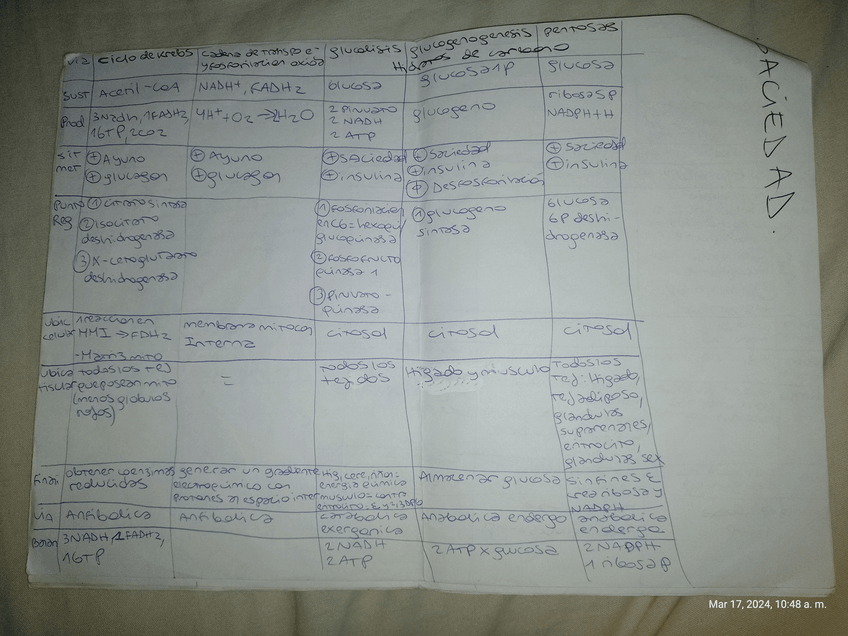 via ciclo de krebs cadena de transpo e- glucolisis glucogenogenesis pentosas
y fosforilacion oxida Hidratos de carbono
Sust Acetil-CoA NADH+, FADH2 Glucosa glucosa 1P glucosa
Prod 3Nadh, 1FADH2, 4H+ + O2 → 2H2O 2 Piruvato glucogeno ribosa 5P
1GTP, 2CO2 2 NADH NADPH+H
2 ATP
sit + Ayuno + Ayuno + saciedad + Saciedad + Saciedad
met + glucagon + glucagon + insulina + insulina + insulina
+ Desfosforilación
Punto ① citrato sintasa ① fosforilacion ① glucogeno Glucosa
Reg ② isocitrato en C6= hexoqu/ sintasa 6P deshi-
deshidrogenasa glucoquinasa drogenasa
③ α-cetoglutarato ② fosfofructo
deshidrogenasa quinasa 1
③ Piruvato-
quinasa
ubic 1 reaccion en membrana mitocon citosol citosol citosol
celular MMI → FADH2 Interna
- Matriz mito
ubica todos los tej = Todos los Higado y musculo Todos los
tisular que posean mito tejidos tej: Higado,
(menos globulos tej adiposo,
rojos) glandulas
suprarenales,
eritrocito,
glandulas sex
Final obtener coenzimas generar un gradiente Hig, cere, riñon= Almacenar glucosa sin fines E
reducidas electroquimico con energia quimica crea ribosa y
protones al espacio inter musculo= contra NADPH
Via Anfibolica Anfibolica catabolica Anabolica endergo anabolica
exergonica endergo.
Balan 3NADH, 1FADH2, 2 NADH 2 ATP x glucosa 2 NADPH
1GTP 2 ATP 1 ribosa P
ACIEDAD.
Mar 17, 2024, 10:48 a. m.